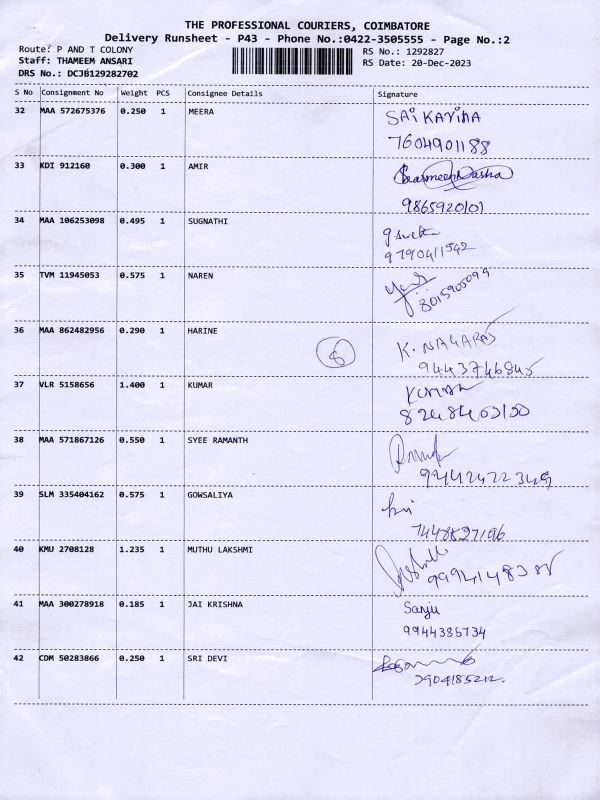 THE PROFESSIONAL COURIERS, COIMBATORE
Delivery Runsheet - P43 - Phone No.:0422-3505555 - Page No.:2
Route: P AND T COLONY
Staff: THAMEEM ANSARI
DRS No.: DCJB129282702
RS No.: 1292827
RS Date: 20-Dec-2023
S No Consignment No Weight PCS Consignee Details Signature
32 MAA 572675376 0.250 1 MEERA SAI KAVIYA
7604901188
33 KDI 912160 0.300 1 AMIR
9865920101
34 MAA 106253098 0.495 1 SUGNATHI
9790411542
35 TVM 11945053 0.575 1 NAREN
8015905099
36 MAA 862482956 0.290 1 HARINE K. NAGARAJ
6
9443746845
37 VLR 5158656 1.400 1 KUMAR KUMAR
8248403150
38 MAA 571867126 0.550 1 SYEE RAMANTH
9442422349
39 SLM 335404162 0.575 1 GOWSALIYA
7448827196
40 KMU 2708128 1.235 1 MUTHU LAKSHMI
41 MAA 300278918 0.185 1 JAI KRISHNA Sanju
9944385734
42 CDM 50283866 0.250 1 SRI DEVI
7904185212.